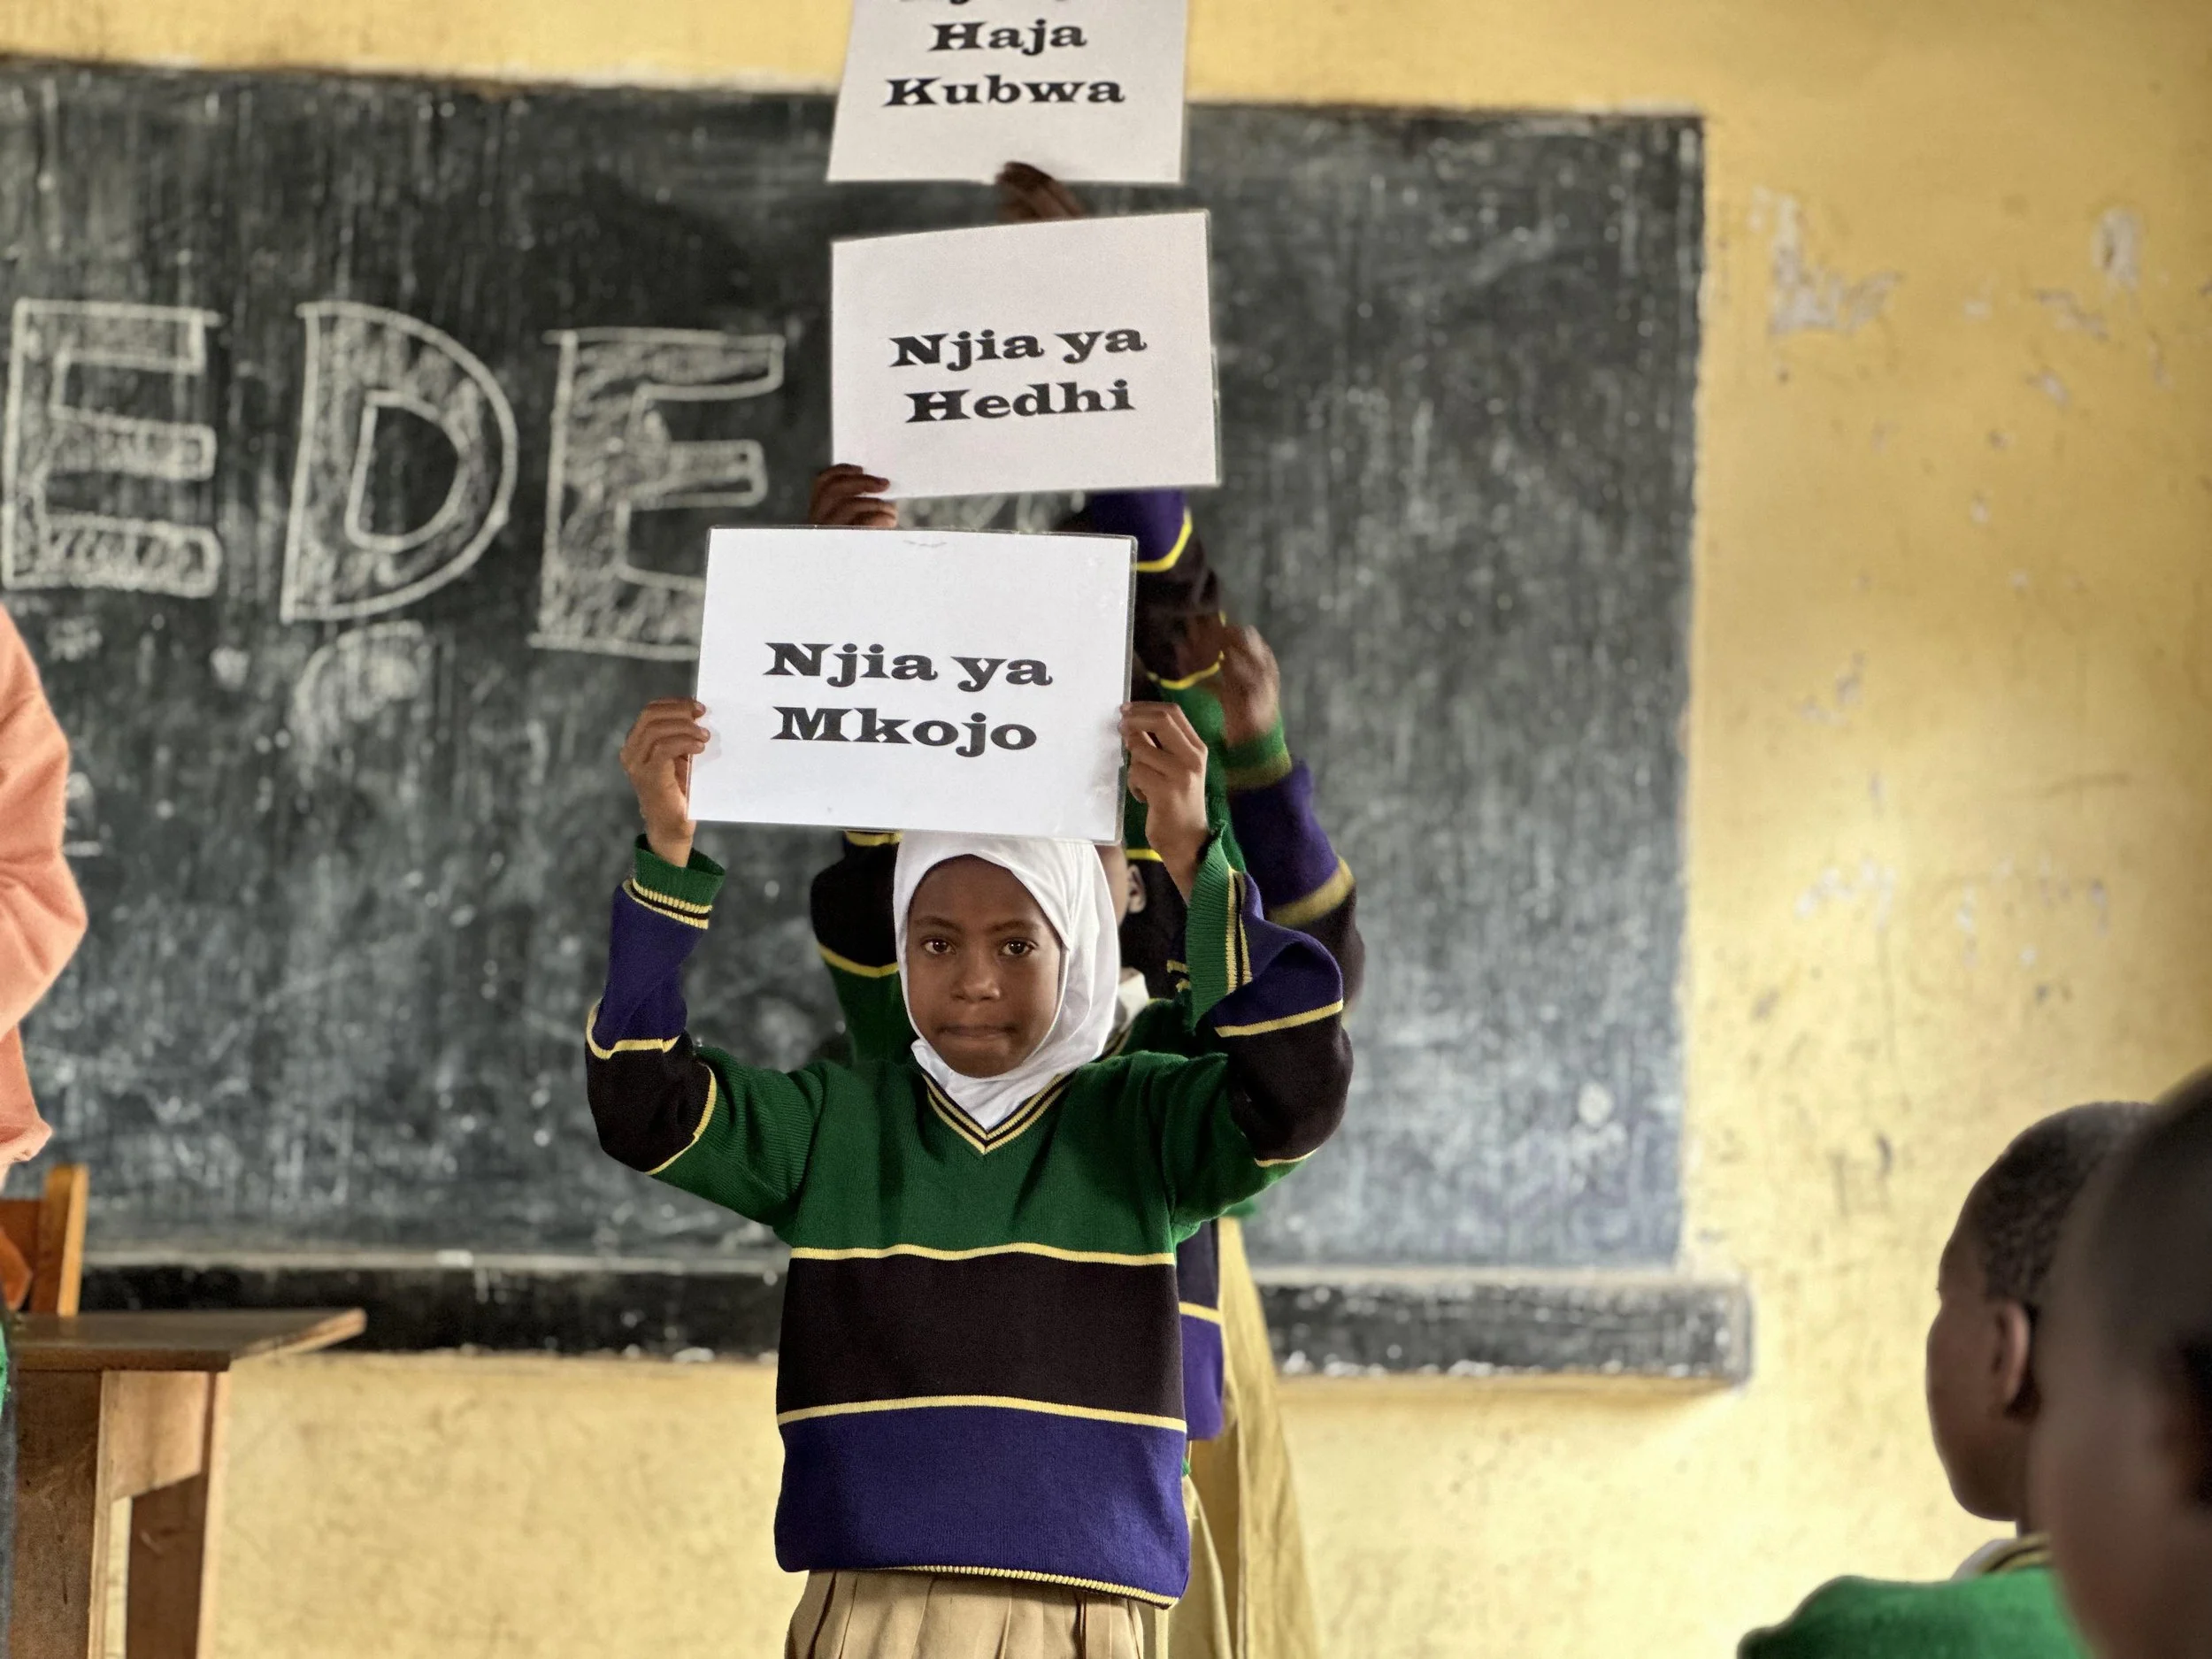 Haja
Kubwa
Njia ya
Hedhi
EDE
Njia ya
Mkojo